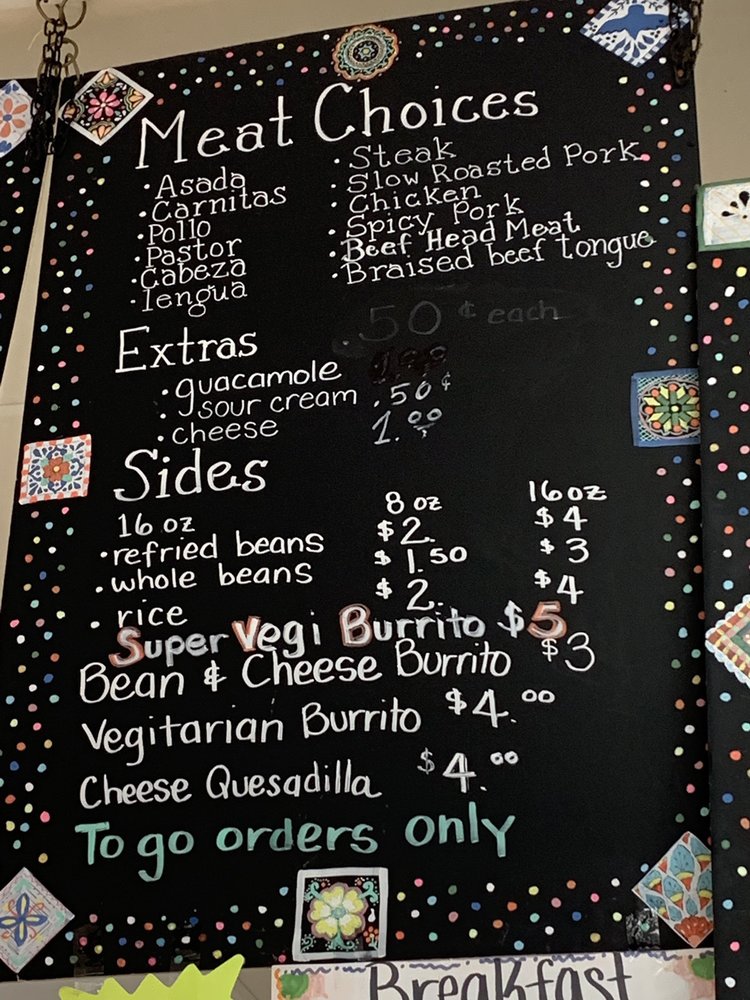 Meat Choices
· Asada · Steak
· Carnitas · Slow Roasted Pork
· Pollo · Chicken
· Pastor · Spicy Pork
· Cabeza · Beef Head Meat
· lengua · Braised beef tongue
.50 ¢ each
Extras
· guacamole
· sour cream .50¢
· cheese 1.00
Sides
16 oz 8 oz 16 oz
· refried beans $2. $4
· whole beans $1.50 $3
· rice $2. $4
Super Vegi Burrito $5
Bean & Cheese Burrito $3
Vegitarian Burrito $4.00
Cheese Quesadilla $4.00
To go orders only
Breakfast